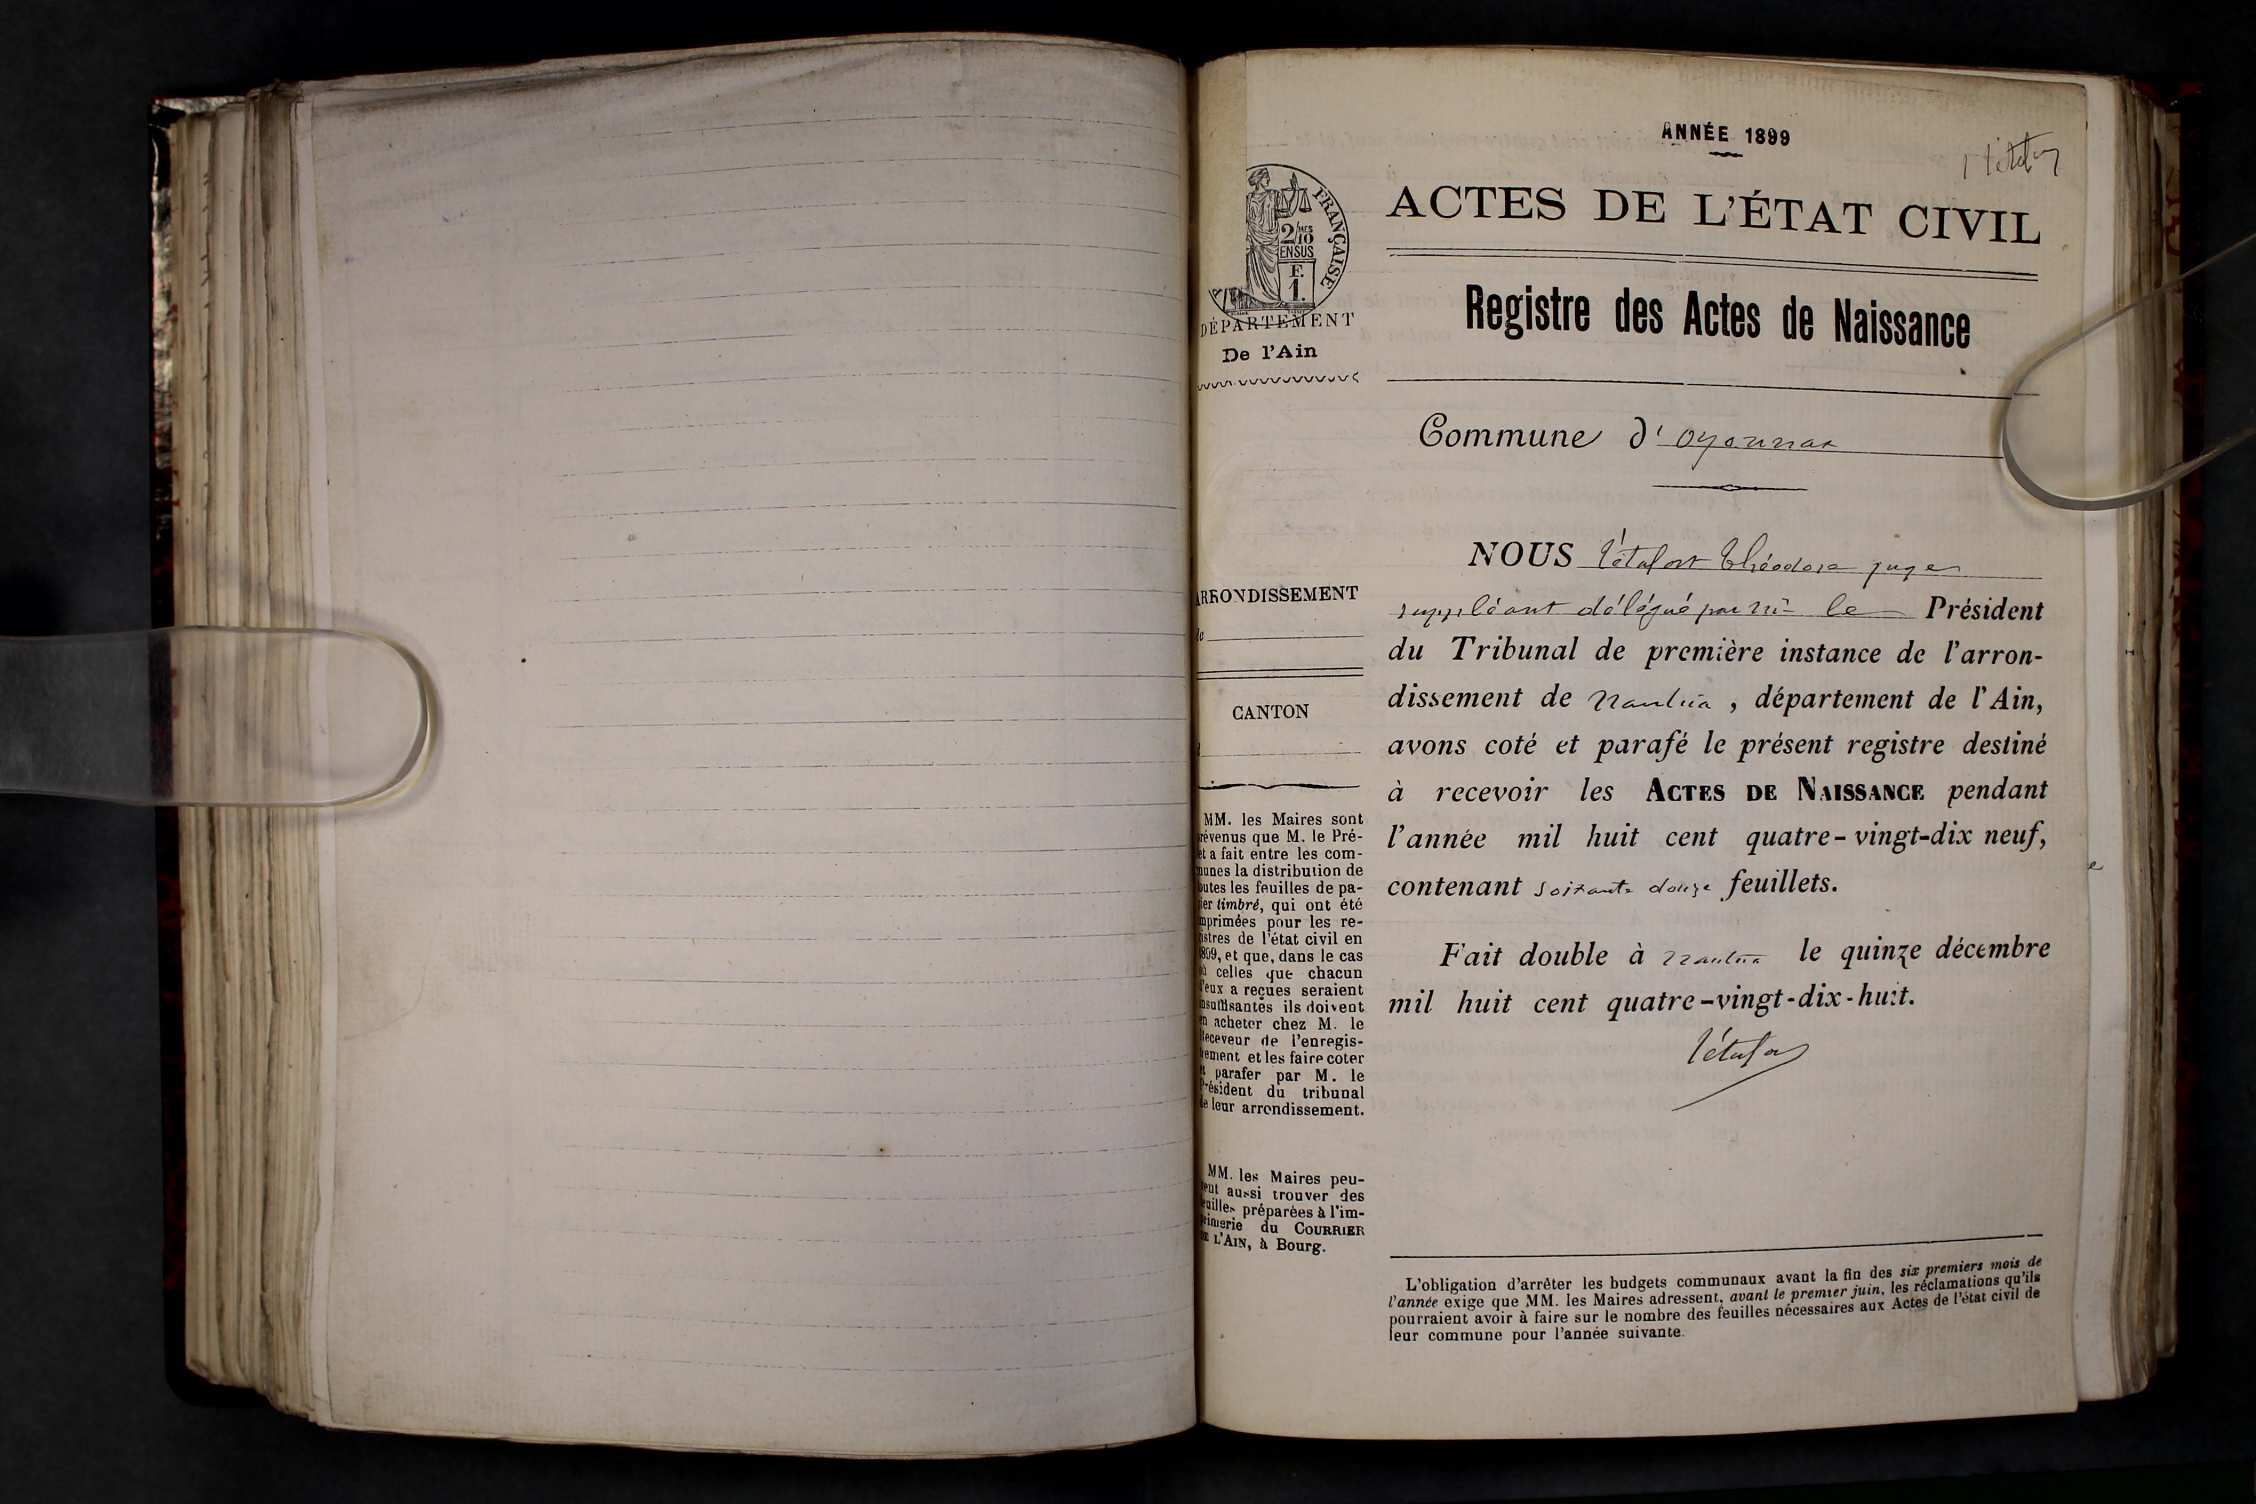 ANNÉE 1899
1
ACTES DE L'ÉTAT CIVIL
FRANÇAISE
2/10 MES
ENSUS
F.
1.
DÉPARTEMENT
De l'Ain
Registre des Actes de Naissance
Commune d'oyonnax
NOUS Tétafort Théodore juge
suppléant délégué par Mr le Président
du Tribunal de première instance de l'arron-
dissement de Nantua, département de l'Ain,
avons coté et parafé le présent registre destiné
à recevoir les ACTES DE NAISSANCE pendant
l'année mil huit cent quatre-vingt-dix neuf,
contenant soixante douze feuillets.
Fait double à Nantua le quinze décembre
mil huit cent quatre-vingt-dix-huit.
ARRONDISSEMENT
de
CANTON
MM. les Maires sont
révenus que M. le Pré-
et a fait entre les com-
unes la distribution de
utes les feuilles de pa-
ier timbré, qui ont été
mprimées pour les re-
istres de l'état civil en
899, et que, dans le cas
ù celles que chacun
'eux a reçues seraient
nsuffisantes ils doivent
n acheter chez M. le
Receveur de l'enregis-
rement et les faire coter
t parafer par M. le
Président du tribunal
de leur arrondissement.
MM. les Maires peu-
ent aussi trouver des
euilles préparées à l'im-
rimerie du COURRIER
DE L'AIN, à Bourg.
L'obligation d'arrêter les budgets communaux avant la fin des six premiers mois de
l'année exige que MM. les Maires adressent, avant le premier juin, les réclamations qu'ils
pourraient avoir à faire sur le nombre des feuilles nécessaires aux Actes de l'état civil de
leur commune pour l'année suivante.